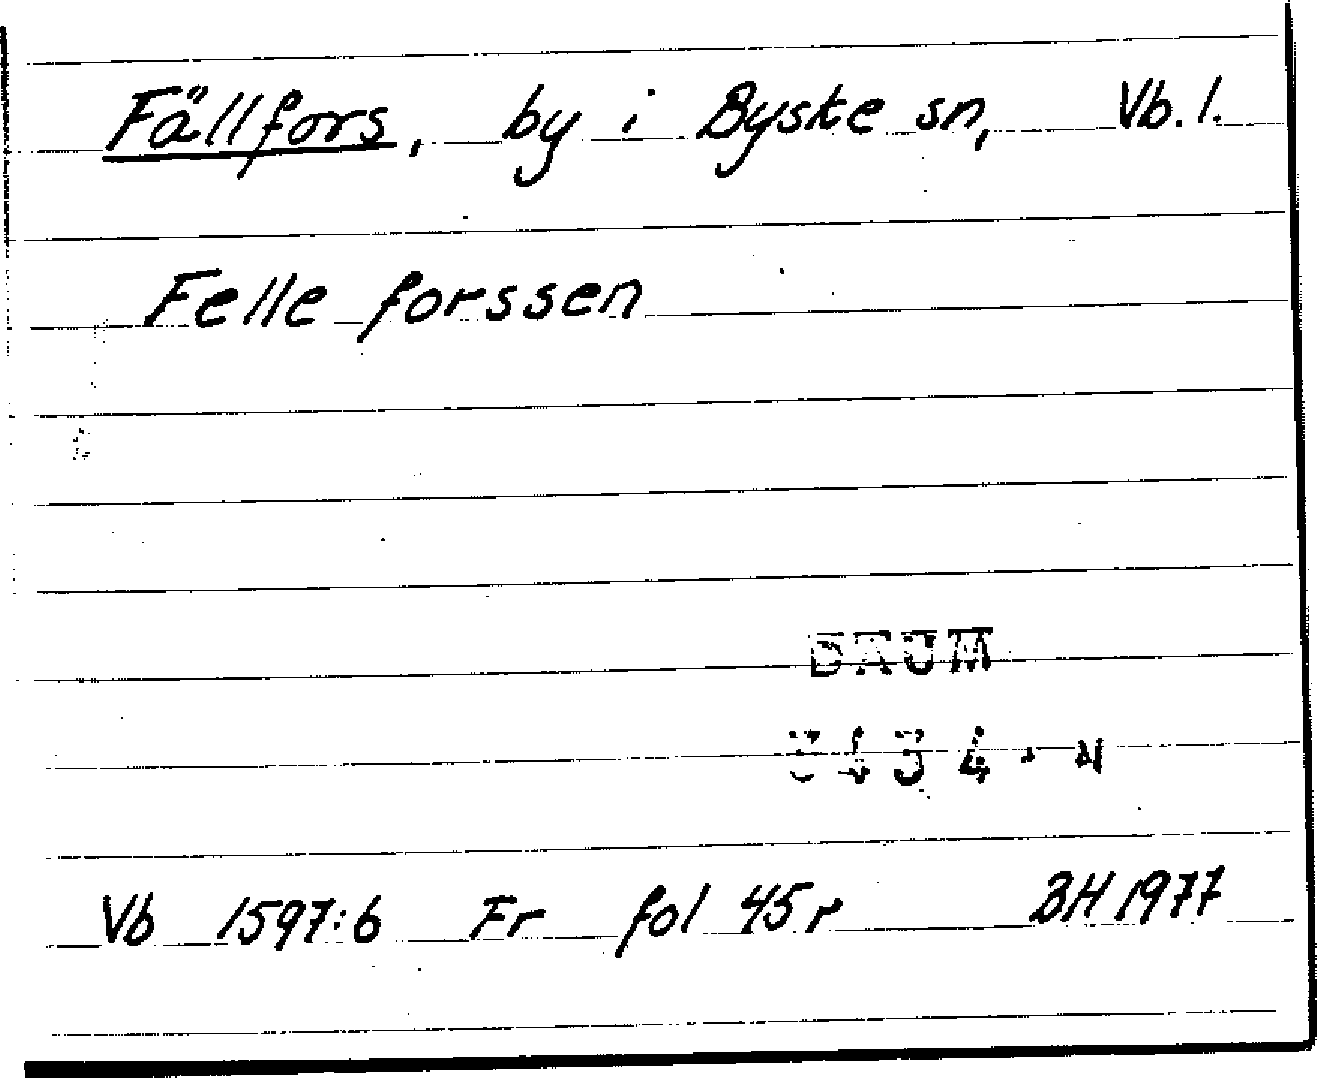 Fällfors, by i Byske sn, Vb. l.
Felle forssen
DAUM
Vb 1597:6 Fr fol 45r BH 1977